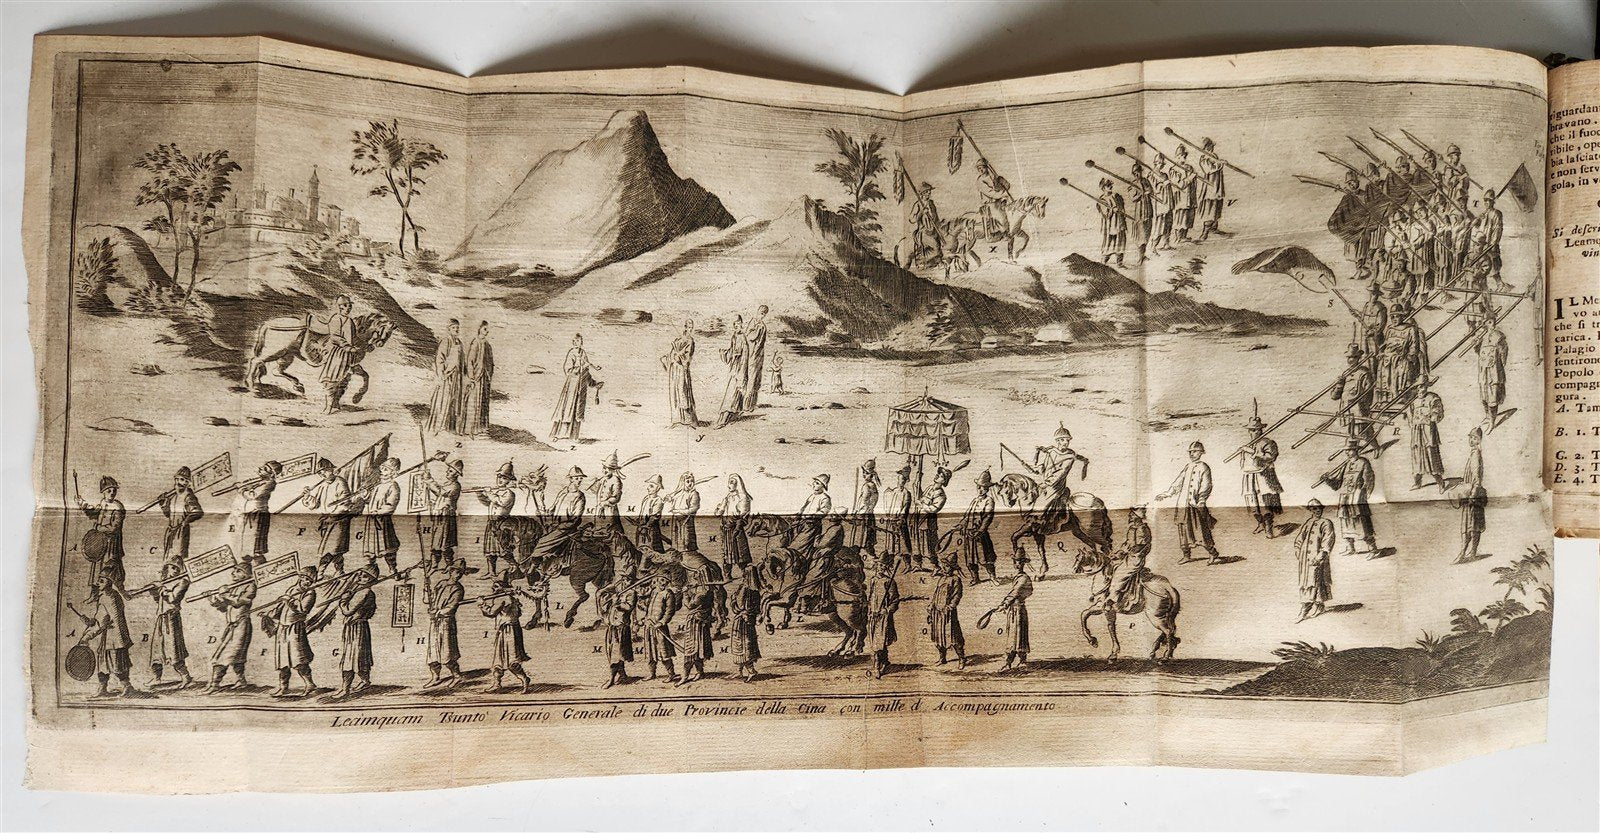 Leamquam Tsuntò Vicario Generale di due Provincie della Cina con mille d' Accompagnamento
A
B
C
D
E
F
F
G
G
H
H
I
I
L
L
M
M
M
M
M
M
M
N
O
O
O
P
Q
R
S
T
V
X
Y
Z
Z
riguardan
bravano.
che il fuoc
ribile, ope
bia lasciat
e non serv
gola, in v
Si descri
Leamq
vin
IL Me
vo a
che si tr
carica.
Palagio
sentirono
Popolo
compagn
gura.
A. Tam
B. 1. T
G. 2. T
D. 3. T
E. 4. T